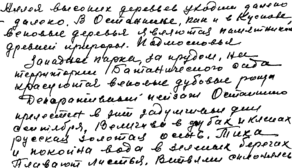 Аллея высоких деревьев уходит далеко
- далеко. В Останкине, как и в Кускове,
вековые деревья являются памятником
древней природы. Подмосковья
Западнее парка, за прудом, на
территории Ботанического сада
красуются вековые дубовые рощи
Декоративный пейзаж Останкино
прелестен в эти задумчивые дни
сентября, Вспыхив в дубах и кленах
русская золотая осень. Тиха
и покойна вода в зеленых берегах
Плавают листья, Ветвями склонились